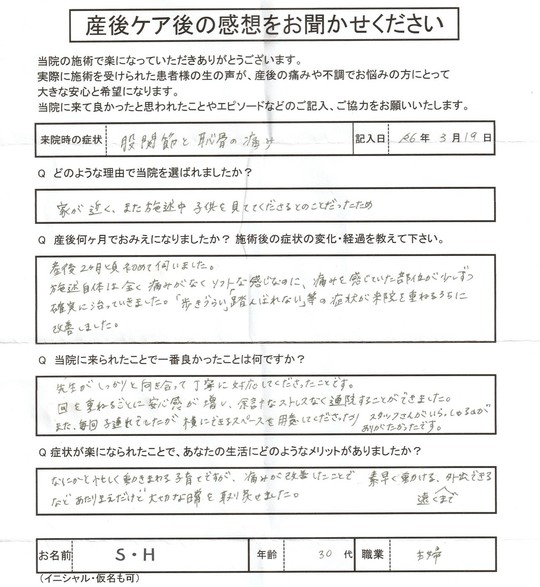 産後ケア後の感想をお聞かせください
当院の施術で楽になっていただきありがとうございます。
実際に施術を受けられた患者様の生の声が、産後の痛みや不調でお悩みの方にとって
大きな安心と希望になります。
当院に来て良かったと思われたことやエピソードなどのご記入、ご協力をお願いいたします。
来院時の症状 股関節と恥骨の痛み 記入日 R6年 3月19日
Q どのような理由で当院を選ばれましたか？
家が近く、また施述中 子供を見ててくださるとのことだったため
Q 産後何ヶ月でおみえになりましたか？ 施術後の症状の変化・経過を教えて下さい。
産後2ヶ月頃 初めて伺いました。
施述自体は全く痛みがなくソフトな感じなのに、痛みを感じていた部位が少しずつ
確実に治っていきました。「歩きづらい」「踏んばれない」等の症状が来院を重ねるうちに
改善しました。
Q 当院に来られたことで一番良かったことは何ですか？
先生がしっかりと向き合って丁寧に対応してくださったことです。
回を重ねるごとに安心感が増し、余計なストレスなく通院することができました。
また、毎回子連れでしたが横にできるスペースを用意してくださったり スタッフさんがいらっしゃるのが
ありがたかったです。
Q 症状が楽になられたことで、あなたの生活にどのようなメリットがありましたか？
なにかと忙しく動きまわる子育てですが、痛みが改善したことで 素早く動ける、外出できる
などあたりまえだけど大切な日常を取り戻せました。 遠くまで
お名前 S・H 年齢 30 代 職業 主婦
(イニシャル・仮名も可)